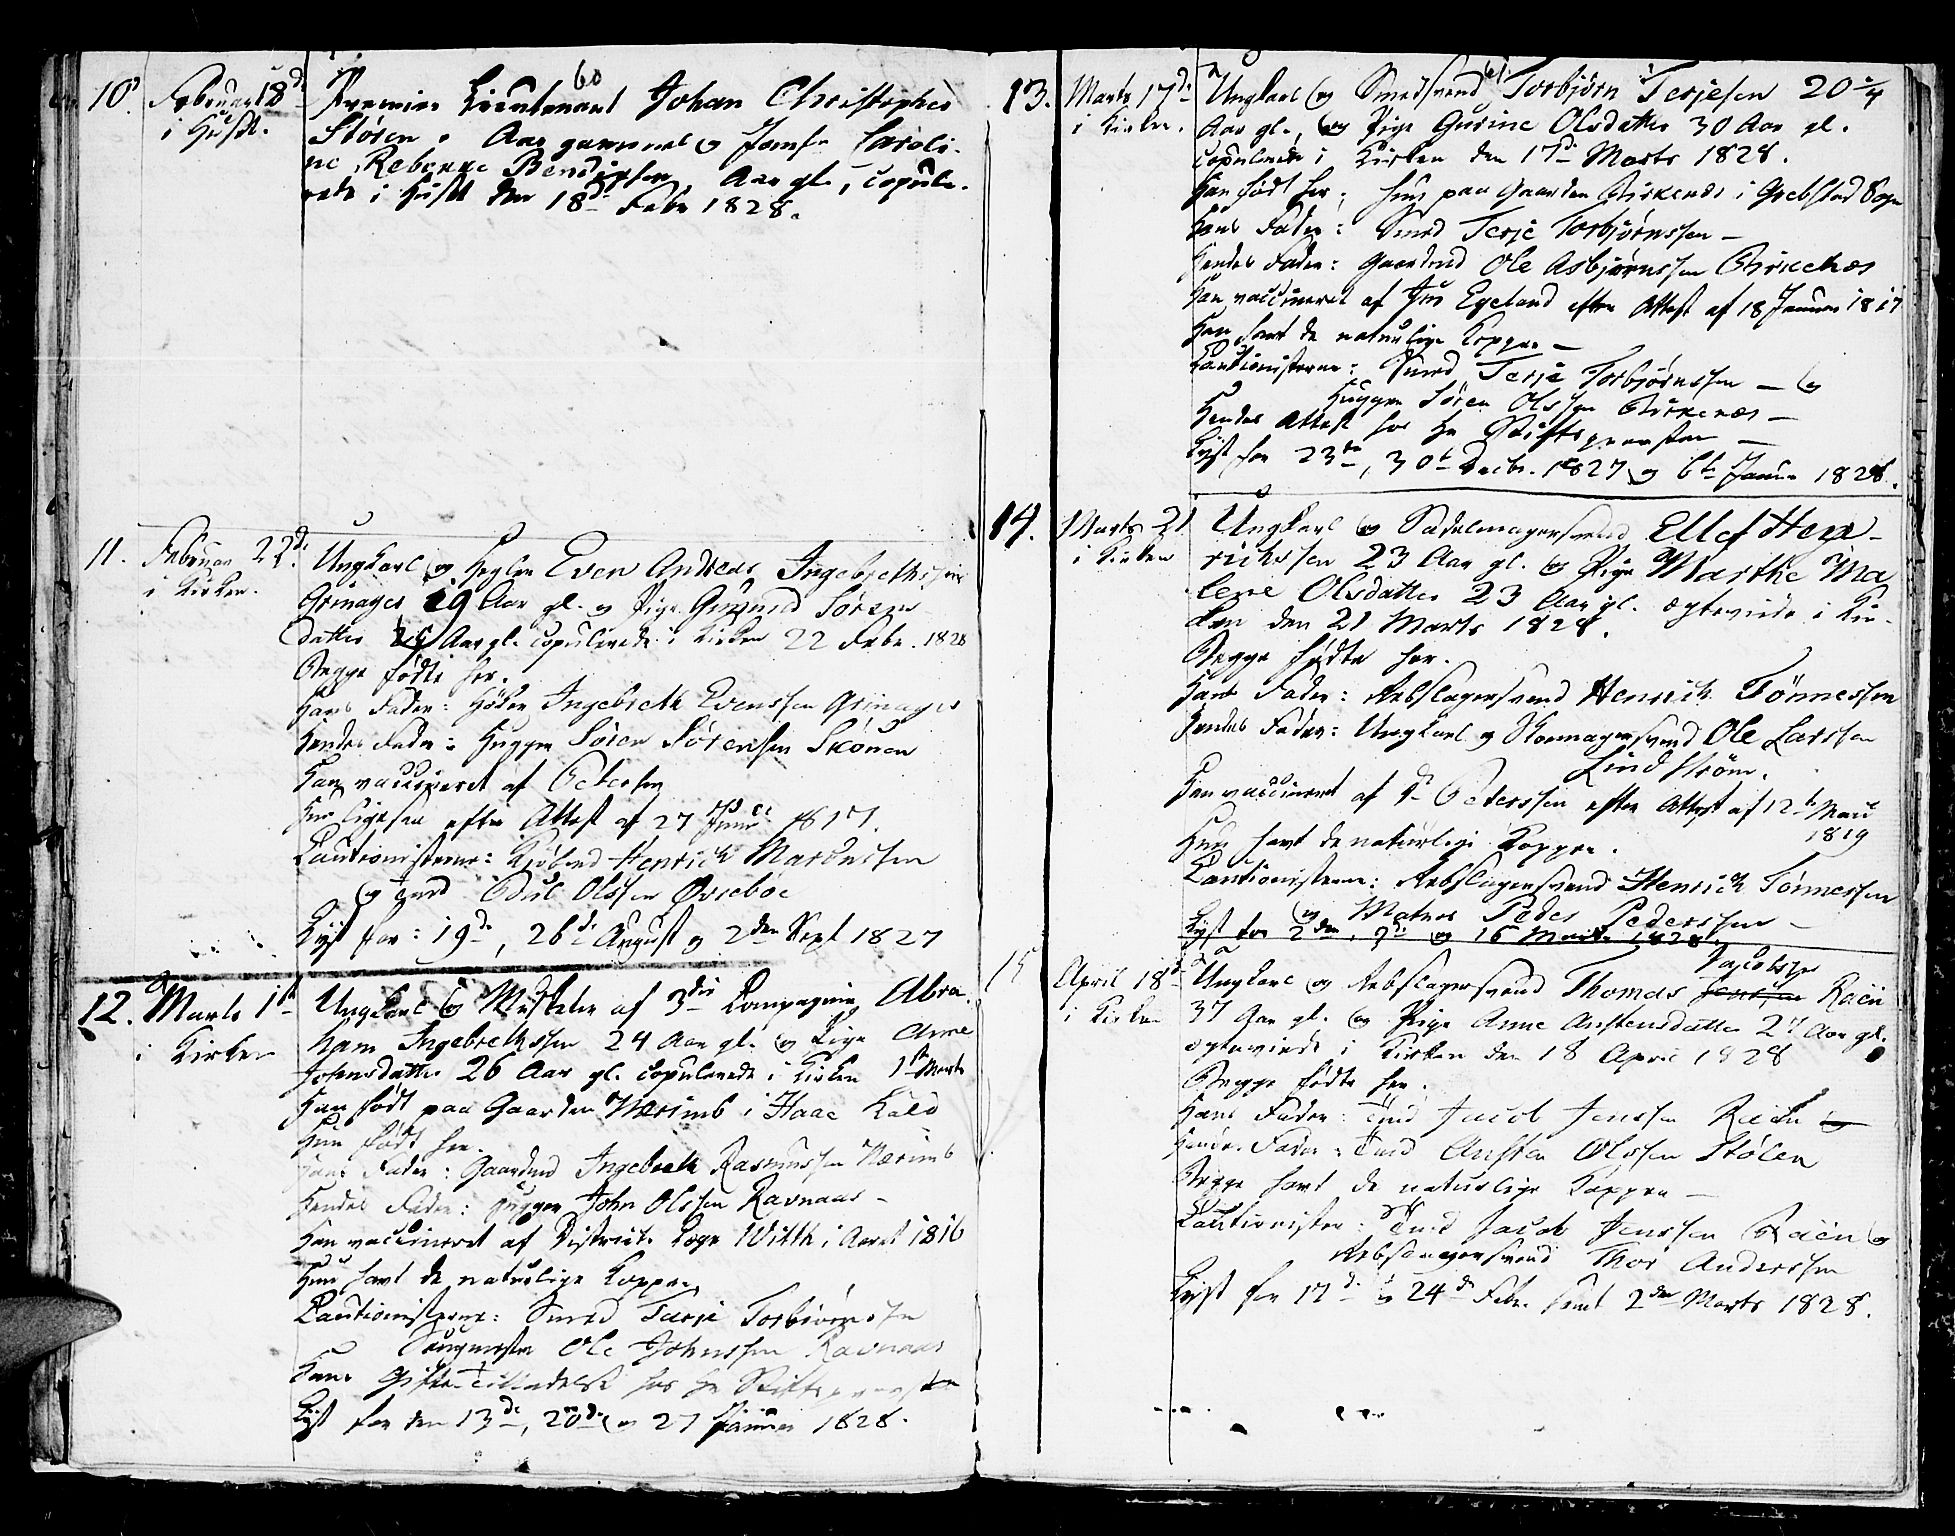 10. Februar 18d
i Huset.
60
Premier Lieutenant Johan Christopher
Stören Aar gammel og Jomfr Caroli-
ne Rebekke Bendixsen, Aar gl., copule-
rede i Huset den 18d Febr 1828.
11. Februar 22d.
i Kirken.
Ungkarl og Even Andreas Ingebrethssen
Grinager 29 Aar gl. og Pige Gunild Sörens
datter Aar gl. copulerede i Kirken 22 Febr. 1828
Begge födte her.
Hans Fader: Ingebreth Evenssen Grinager
Hendes Fader: Hugger Sören Sörensen Skönen
Han vaccineret af Petersen
Hun ligesaa efter Attest af 27 1817.
Cautionisterne: Henrich
og Tmd Olssen Övreboe
Lyst for: 19de, 26de August og 2den Sept 1827
12. Marts 1ste
i Kirken
Ungkarl og Musketer af 3die Compagnie Abra
ham Ingebrethssen 24 Aar gl. og Pige Anne
Johnsdatter 26 Aar gl. copulerede i Kirken 1ste Marts
Han födt paa Gaarden i Haae Kald
Hun födt her.
Hans Fader: Gaardmd Ingebreth Rasmussen
Hendes Fader: Hugger John Olssen Ravnaas -
Han vaccineret af Districts Witth i Aaret 1816
Hun havt de naturlige Kopper
Cautionisterne: Smed Terje Torbiörnssen
Ole Johnssen Ravnaas
Hans Gifte-Tilladelse hos Hr Stiftsprovsten
Lyst for den 13de, 20de og 27 Januar 1828.
13. Marts 17de
i Kirken.
61
Ungkarl og Smedsvend Torbjörn Terjesen 20 1/4
Aar gl., og Pige Gurine Olsdatter 30 Aar gl.
copulerede i Kirken den 17de Marts 1828.
Han födt her, hun paa Gaarden Birkenes i Grebstad Sogn
Hans Fader: Smed Terje Torbjörnssen -
Hendes Fader: Gaardmd Ole Asbjörnssen Birkenes
Han vaccineret af Jens Egeland efter Attest af 18 Januar 1817
Hun havt de naturlige Kopper -
Cautionisterne: Smed Terje Torbjörnssen - og
Hugger Sören Olssen Birkenes -
Hendes Attest hos Hr Stiftsprovsten -
Lyst for 23de, 30te Decbr. 1827 og 6te Januar 1828.
14. Marts 21
i Kirken
Ungkarl og Sadelmagersvend Ellef Hen-
richssen 23 Aar gl. og Pige Marthe Ma
lene Olsdatter 23 Aar gl. ægteviede i Kir-
ken den 21 Marts 1828.
Begge födte her.
Hans Fader: Rebslagersvend Henrich Tönnessen
Hendes Fader: Ungkarl og Skomagersvend Ole Larssen
Lindström.
Han vaccineret af Pederssen efter Attest af 12te
1819
Hun havt de naturlige Kopper.
Cautionisterne: Rebslagersvend Henrich Tönnessen
og Matros Peder Pederssen -
Lyst for 2den, 9de og 16 Marts 1828.
15 April 18d
i Kirken
Jacobsen
Ungkarl og Rebslagersvend Thomas Jenssen Raen
37 Aar gl. og Pige Anne Austensdatter 27 Aar gl.
ægteviede i Kirken den 18 April 1828
Begge födte her.
Hans Fader: Tmd Jacob Jenssen Raen
Hendes Fader: Tmd Austen Olssen Stölen
Begge havt de naturlige Kopper -
Cautionister: Tmd Jacob Jenssen Raen og
Rebslagersvend Thor Anderssen
Lyst for 17de og 24de Febr samt 2den Marts 1828.